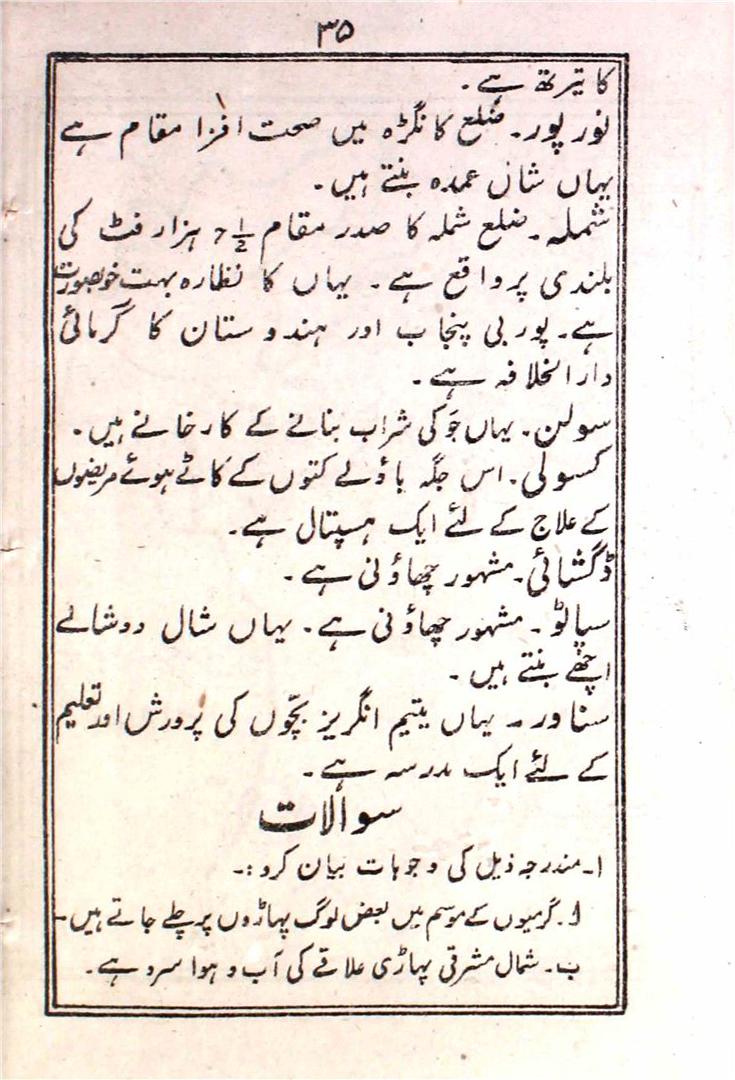 ۳۵
کا تیرتھ ہے۔
نور پور۔ ضلع کانگڑہ میں صحت افزا مقام ہے
یہاں شال عمدہ بنتے ہیں۔
شملہ۔ ضلع شملہ کا صدر مقام ۷½ ہزار فٹ کی
بلندی پر واقع ہے۔ یہاں کا نظارہ بہت خوبصورت
ہے۔ پوربی پنجاب اور ہندوستان کا گرمائی
دارالخلافہ ہے۔
سولن۔ یہاں جَو کی شراب بنانے کے کارخانے ہیں۔
کسولی۔ اس جگہ باؤلے کتوں کے کاٹے ہوئے مریضوں
کے علاج کے لئے ایک ہسپتال ہے۔
ڈگشائی۔ مشہور چھاؤنی ہے۔
سپاٹو۔ مشہور چھاؤنی ہے۔ یہاں شال دوشالے
اچھے بنتے ہیں۔
سناور۔ یہاں یتیم انگریز بچّوں کی پرورش اور تعلیم
کے لئے ایک مدرسہ ہے۔
سوالات
۱۔ مندرجہ ذیل کی وجوہات بیان کرو:۔
ا۔ گرمیوں کے موسم میں بعض لوگ پہاڑوں پر چلے جاتے ہیں۔
ب۔ شمال مشرقی پہاڑی علاقے کی آب و ہوا سرد ہے۔